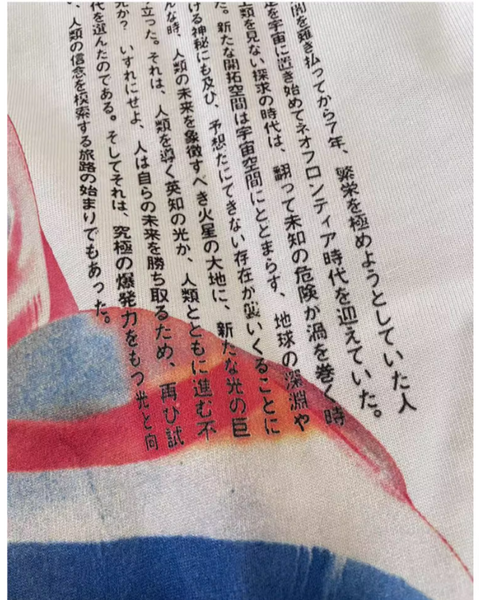 闇を薙ぎ払ってから7年、繁栄を極めようとしていた人
を宇宙に置き始めてネオフロンティア時代を迎えていた。
類を見ない探求の時代は、翻って未知の危険が渦を巻く時
た。新たな開拓空間は宇宙空間にとどまらず、地球の深淵や
ける神秘にも及び、予想だにできない存在が襲いくることに
んな時、人類の未来を象徴すべき火星の大地に、新たな光の巨
立った。それは、人類を導く英知の光か、人類とともに進む不
光か? いずれにせよ、人は自らの未来を勝ち取るため、再び試
代を選んだのである。そしてそれは、究極の爆発力をもつ光と向
、人類の信念を模索する旅路の始まりでもあった。